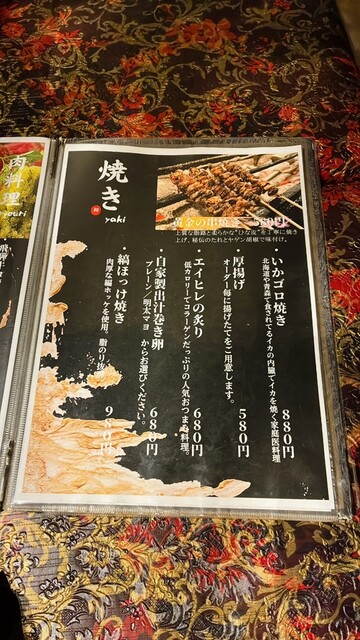 焼き
yaki
黄金の串焼き 550円
上質な脂路と柔らかな"ひな皮"を丁寧に焼き
上げ、秘伝のたれとヤゲン胡椒で味付け。
いかゴロ焼き
北海道や青森で食されてるイカの内臓でイカを焼く家庭医料理
880円
厚揚げ
オーダー毎に揚げたてをご用意します。
580円
・エイヒレの炙り
低カロリーでコラーゲンたっぷりの人気おつまみ料理。
680円
・自家製出汁巻き卵
プレーン/明太マヨ からお選びください。
680円
・縞ほっけ焼き
肉厚な縞ホッケを使用。脂のり抜
980円
肉料理